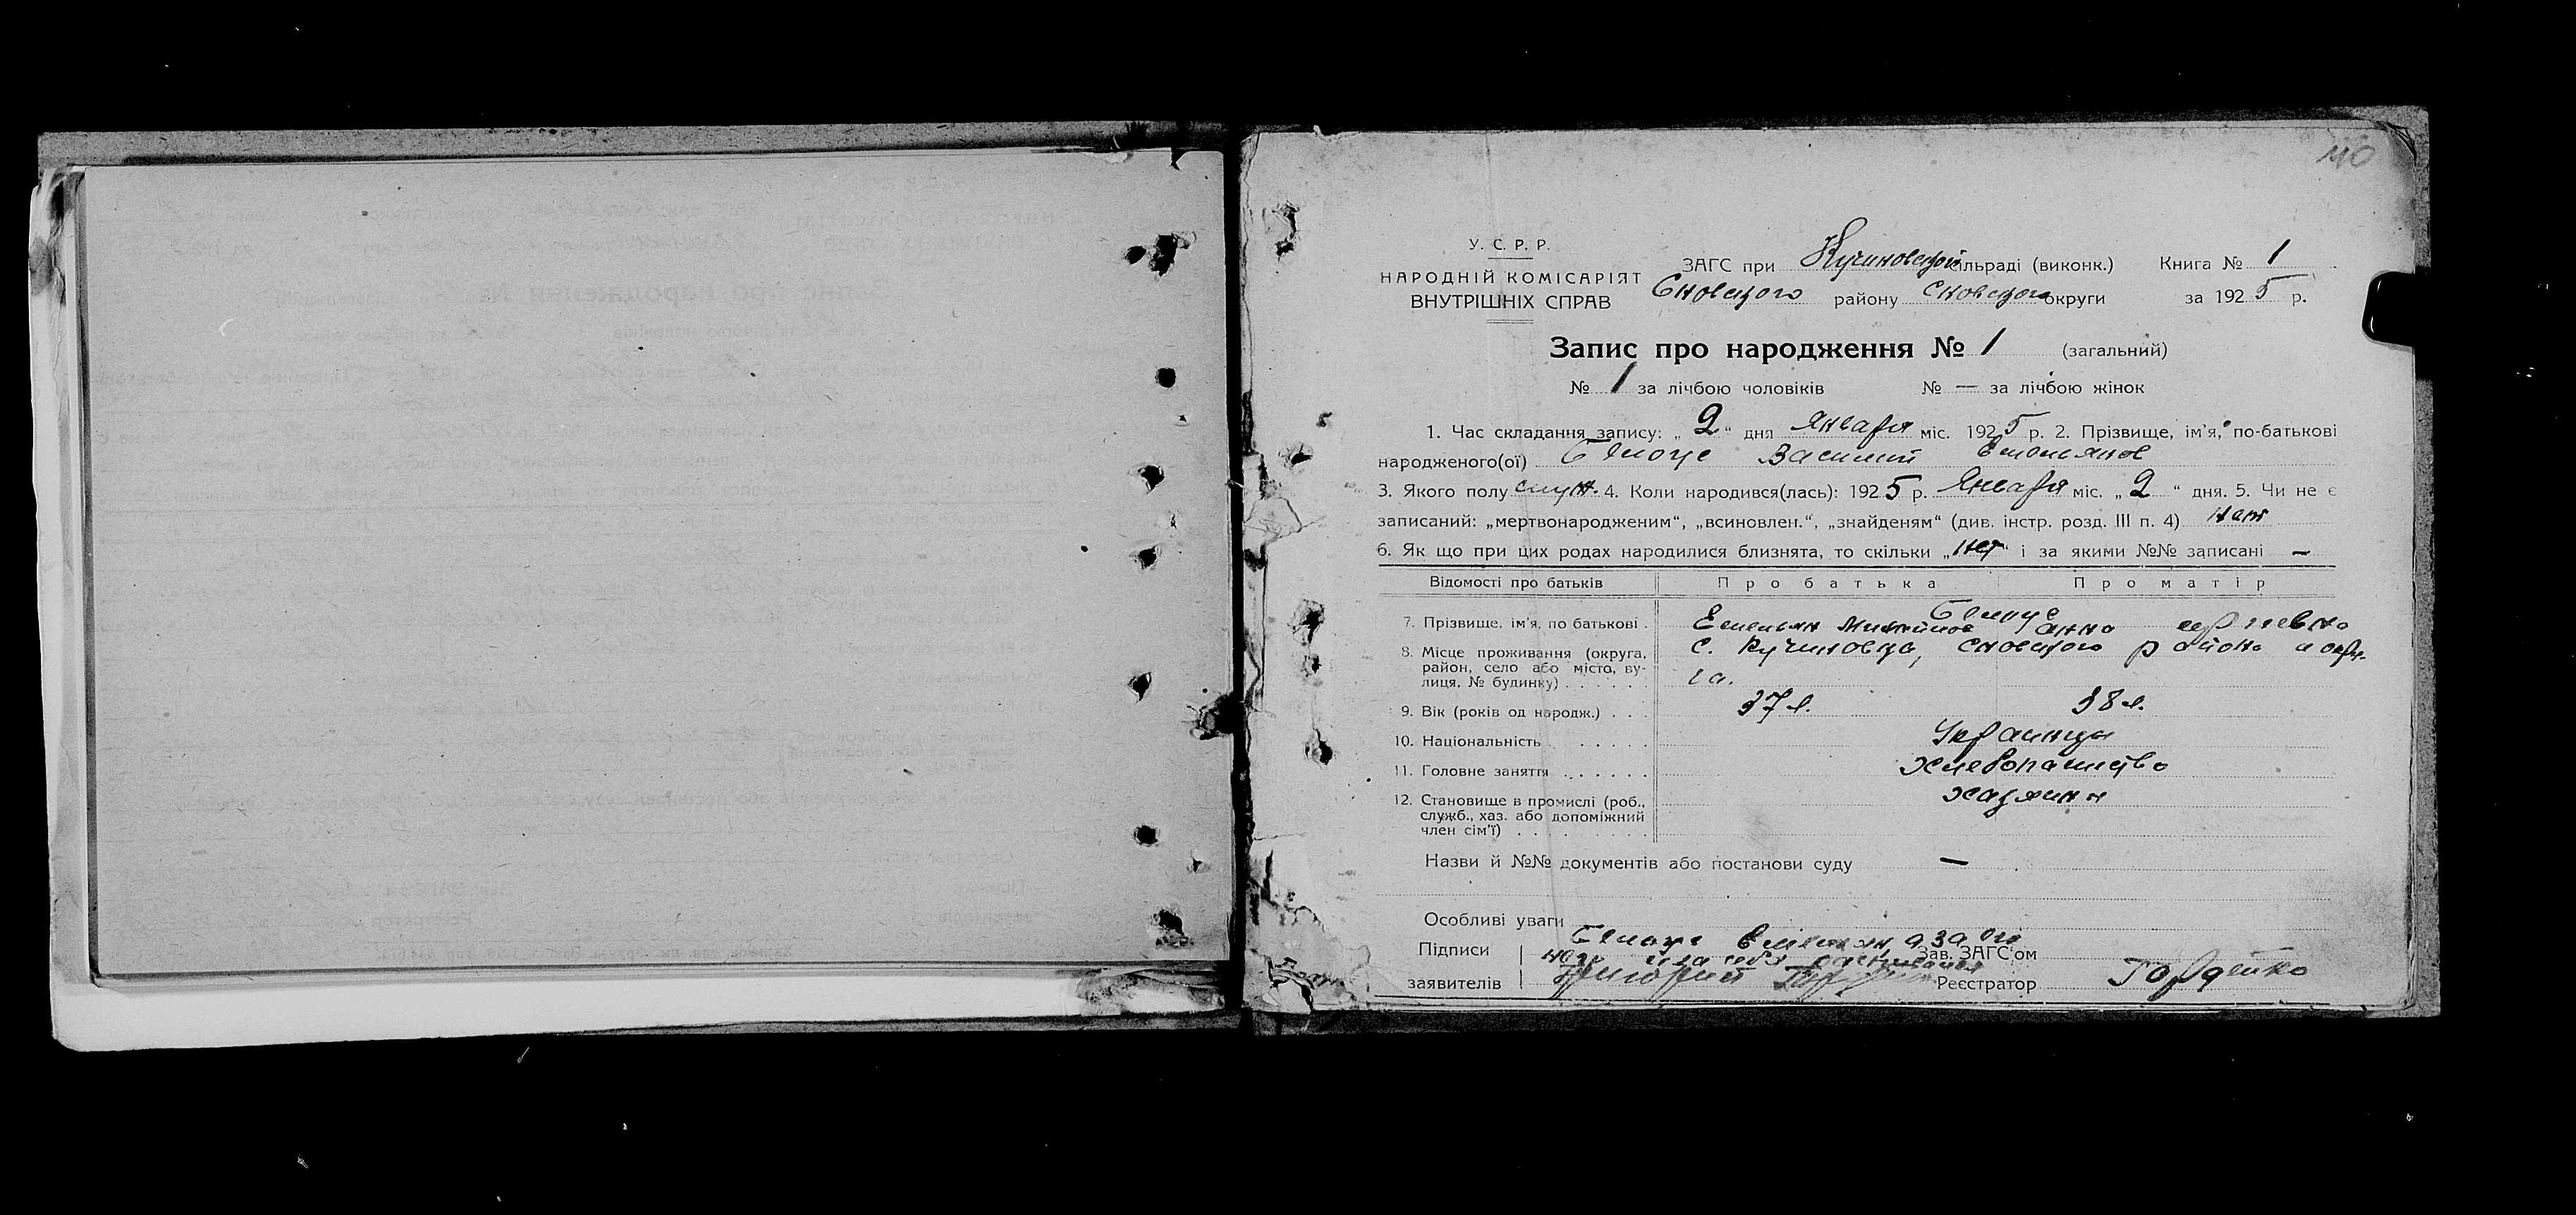 110
У. С. Р. Р.
НАРОДНІЙ КОМІСАРІЯТ
ВНУТРІШНІХ СПРАВ
ЗАГС при Кучиновской сільраді (виконк.) Книга № 1
Сновского району Сновского округи за 1925 р.
Запис про народження № 1 (загальний)
№ 1 за лічбою чоловіків № — за лічбою жінок
1. Час складання запису: „ 2 “ дня Января міс. 1925 р. 2. Прізвище, ім'я, по-батькові
народженого(ої) Белоус Василий Емельянов
3. Якого полу муж. 4. Коли народився(лась): 1925 р. Января міс. „ 2 “ дня. 5. Чи не є
записаний: „мертвонародженим“, „всиновлен.“, „знайденям“ (див. інстр. розд. III п. 4) нет
6. Як що при цих родах народилися близнята, то скільки „нет“ і за якими №№ записані —
Відомості про батьків Про батька Про матір
7. Прізвище, ім'я, по батькові . Белоус Емельян Анна
8. Місце проживання (округа, район, село або місто, вулиця, № будинку) . . . . . . с. Кучиновка, Сновского района и окру-
га.
9. Вік (років од народж.) . . . 37 л. 38 л.
10. Національність . . . . . . Украинцы
11. Головне заняття . . . . . . Хлебопашество
12. Становище в промислі (роб., служб., хаз. або допоміжний член сім'ї) . . . . . . . . Хазяины
Назви й №№ документів або постанови суду —
Особливі уваги
Підписи Белоус Емельян а за его
заявителів Григорий
Зав. ЗАГС'ом
Реєстратор Гордейко